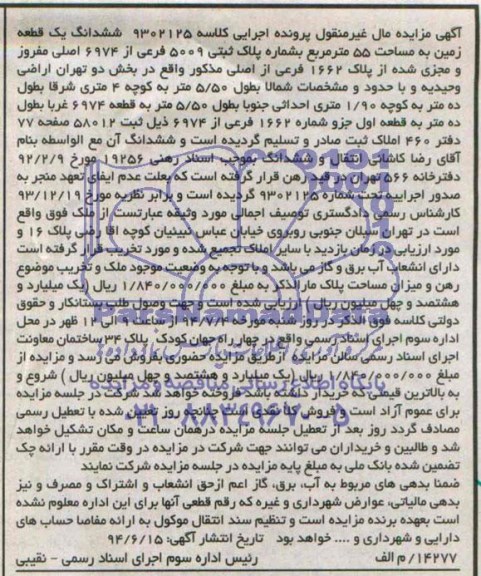 آگهی مزایده مال غیرمنقول پرونده اجرایی کلاسه ۹۳۰۲۱۲۵ ششدانگ یک قطعه
زمین به مساحت ۵۵ مترمربع بشماره پلاک ثبتی ۵۰۰۹ فرعی از ۶۹۷۴ اصلی مفروز
و مجزی شده از پلاک ۱۶۶۲ فرعی از اصلی مذکور واقع در بخش دو تهران اراضی
وحیدیه و با حدود و مشخصات شمالا بطول ۵/۵۰ متر به کوچه ۴ متری شرقا بطول
ده متر به کوچه ۱/۹۰ متری احداثی جنوبا بطول ۵/۵۰ متر به قطعه ۶۹۷۴ غربا بطول
ده متر به قطعه اول جزو شماره ۱۶۶۲ فرعی از ۶۹۷۴ ذیل ثبت ۵۸۰۱۲ صفحه ۷۷
دفتر ۴۶۰ املاک ثبت صادر و تسلیم گردیده است و ششدانگ آن مع الواسطه بنام
آقای رضا کاشانی انتقال و ششدانگ بموجب اسناد رهنی ۹۲۵۶ مورخ ۹۲/۲/۹
دفترخانه ۵۶۶ تهران در قید رهن قرار گرفته است که بعلت عدم ایفای تعهد منجر به
صدور اجراییه تحت شماره ۹۳۰۲۱۲۵ گردیده است و برابر نظریه مورخ ۹۳/۱۲/۱۹
کارشناس رسمی دادگستری توصیف اجمالی مورد وثیقه عبارتست از ملک فوق واقع
است در تهران سبلان جنوبی روبروی خیابان عباس نبینیان کوچه اقا رضی پلاک ۱۶ و
مورد ارزیابی در زمان بازدید با سایر املاک تجمیع شده و مورد تخریب قرار گرفته است
دارای انشعاب آب برق و گاز می باشد و با توجه به وضعیت موجود ملک و تخریب موضوع
رهن و میزان مساحت پلاک مارالذکر به مبلغ ۱/۸۴۰/۰۰۰/۰۰۰ ریال (یک میلیارد و
هشتصد و چهل میلیون ریال) ارزیابی شده است و جهت وصول طلب بستانکار و حقوق
دولتی کلاسه فوق الذکر در روز شنبه مورخه ۹۴/۷/۴ از ساعت ۹ الی ۱۲ ظهر در محل
اداره سوم اجرای اسناد رسمی واقع در چهار راه جهان کودک پلاک ۳۴ ساختمان معاونت
اجرای اسناد رسمی سالن مزایده از طریق مزایده حضوری بفروش می رسد و مزایده از
مبلغ ۱/۸۴۰/۰۰۰/۰۰۰ ریال (یک میلیارد و هشتصد و چهل میلیون ریال) شروع و
به بالاترین قیمتی که خریدار داشته باشد فروخته خواهد شد شرکت در جلسه مزایده
برای عموم آزاد است و فروش کلا نقدی است چنانچه روز تعیین شده با تعطیل رسمی
مصادف گردد روز بعد از تعطیل جلسه مزایده درهمان ساعت و مکان تشکیل خواهد
شد و طالبین و خریداران می توانند جهت شرکت در مزایده در وقت مقرر با ارائه چک
تضمین شده بانک ملی به مبلغ پایه مزایده در جلسه مزایده شرکت نمایند
ضمنا بدهی های مربوط به آب، برق، گاز اعم ازحق انشعاب و اشتراک و مصرف و نیز
بدهی مالیاتی، عوارض شهرداری و غیره که رقم قطعی آنها برای این اداره معلوم نشده
است بعهده برنده مزایده است و تنظیم سند انتقال موکول به ارائه مفاصا حساب های
دارایی و شهرداری و .... خواهد بود تاریخ انتشار آگهی: ۹۴/۶/۱۵
۱۴۲۷۷/ م الف رئیس اداره سوم اجرای اسناد رسمی - نقیبی
ParsNamadData
پایگاه اطلاع رسانی مناقصه و مزایده